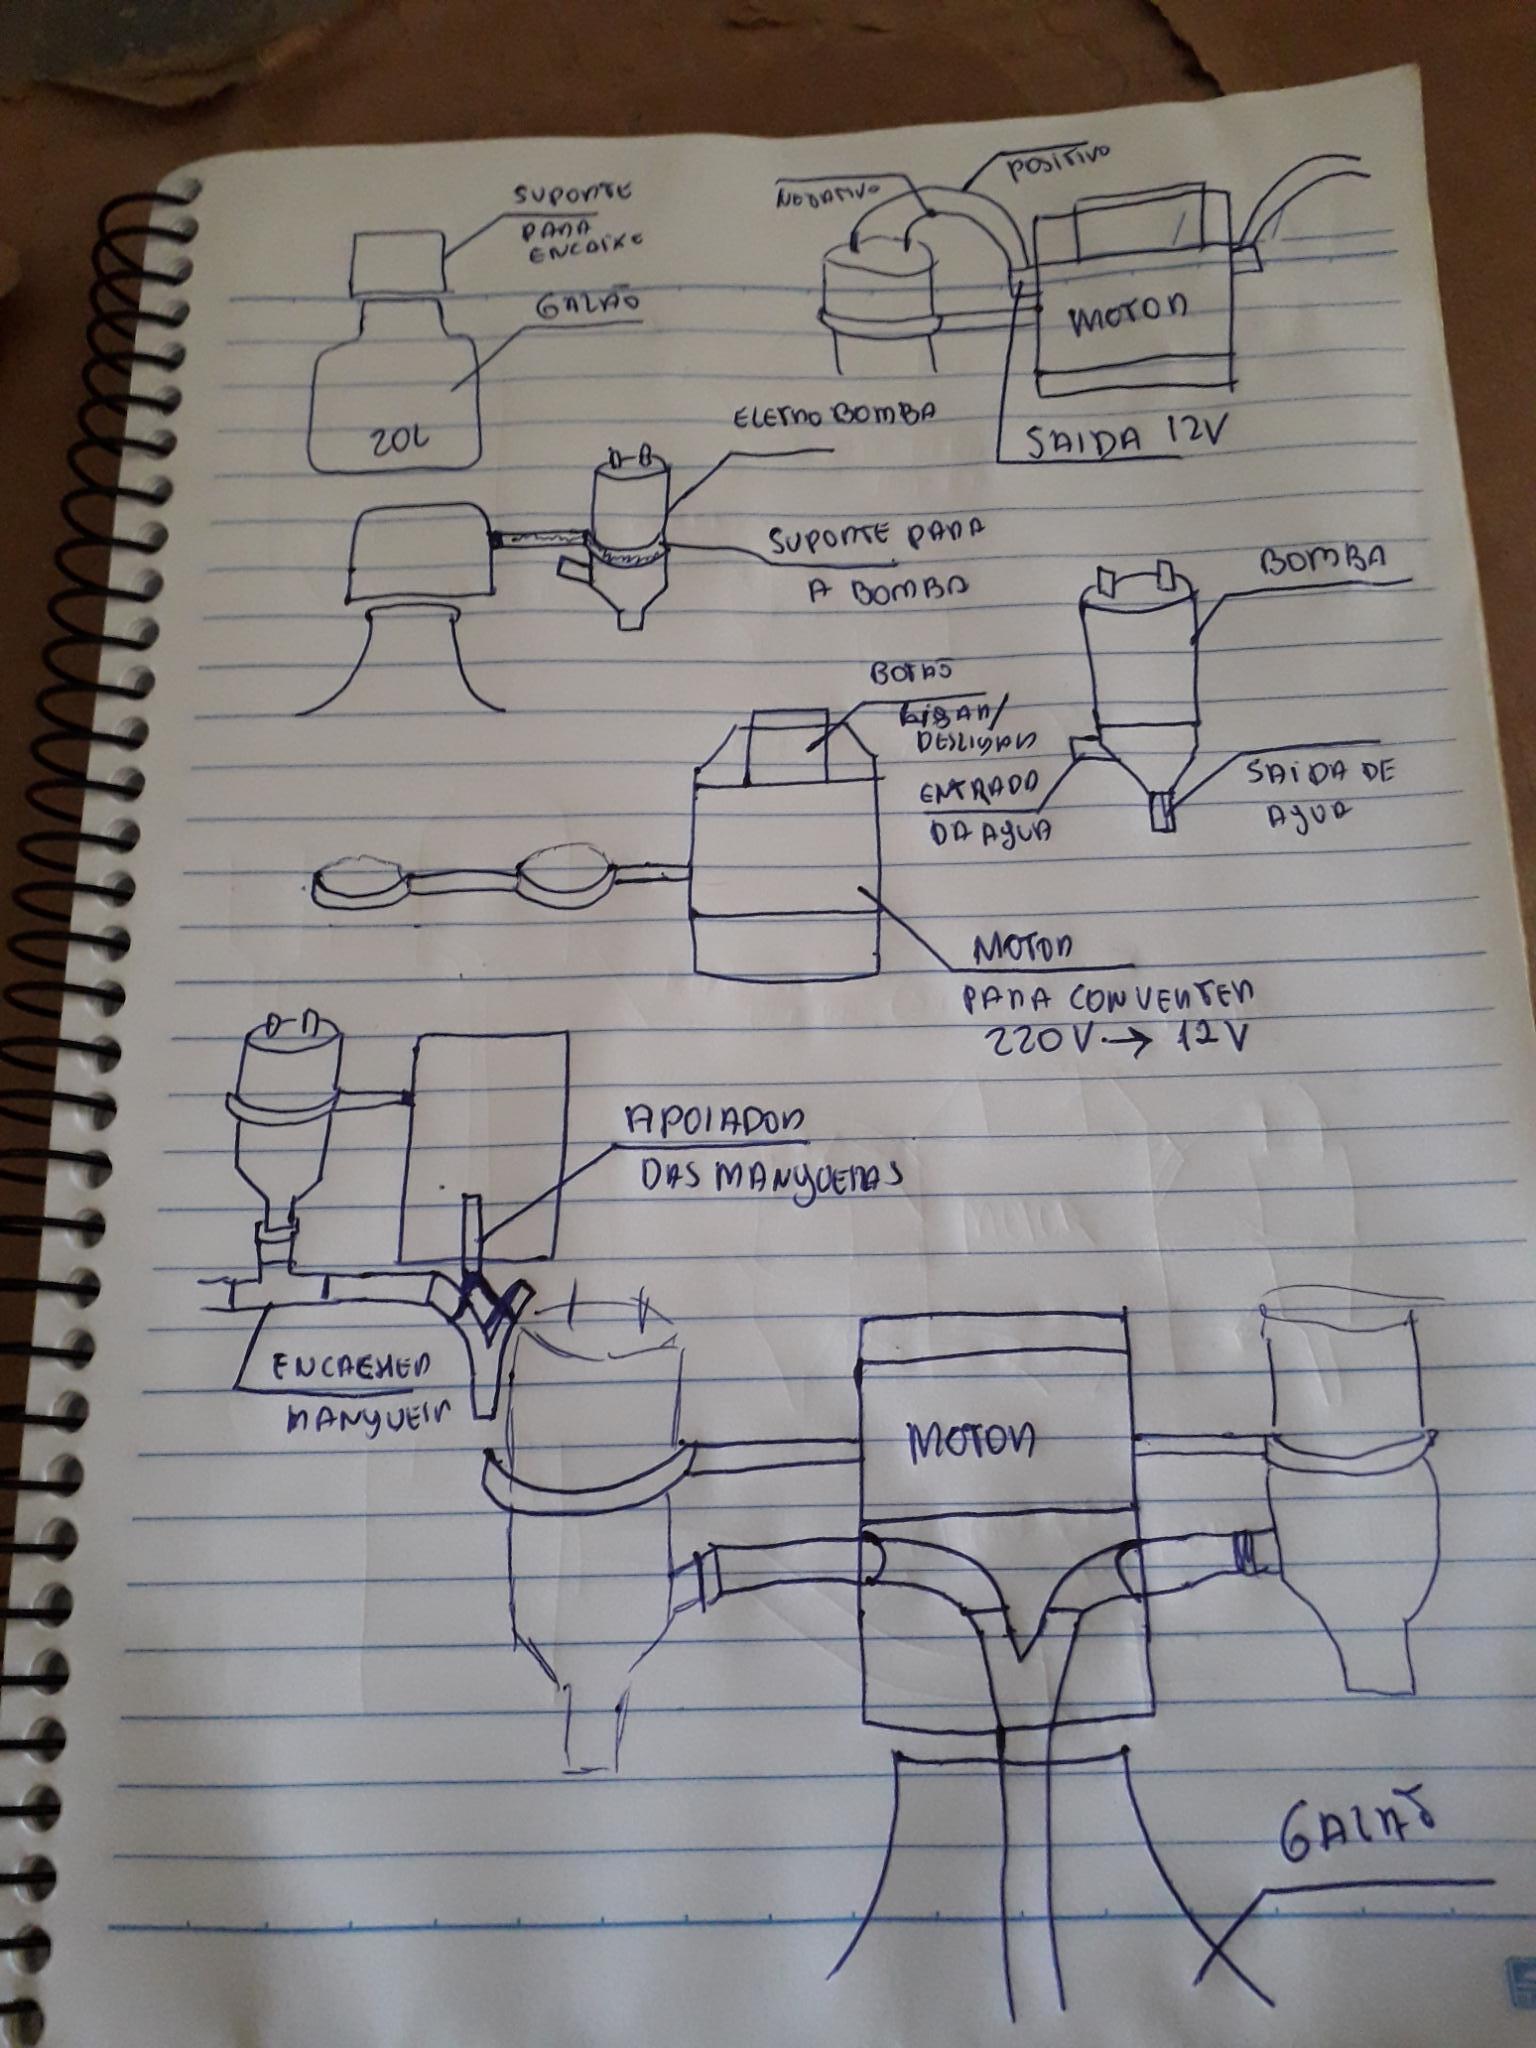 SUPORTE
PARA
ENCAIXE
GALÃO
20L
NEGATIVO
POSITIVO
MOTOR
SAIDA 12V
ELETROBOMBA
SUPORTE PARA
A BOMBA
BOMBA
BOTÃO
LIGAR/
DESLIGAR
ENTRADA
DA AGUA
SAIDA DE
AGUA
MOTOR
PARA CONVERTER
220V → 12V
APOIADOR
DAS MANGUERAS
MOTOR
GALÃO